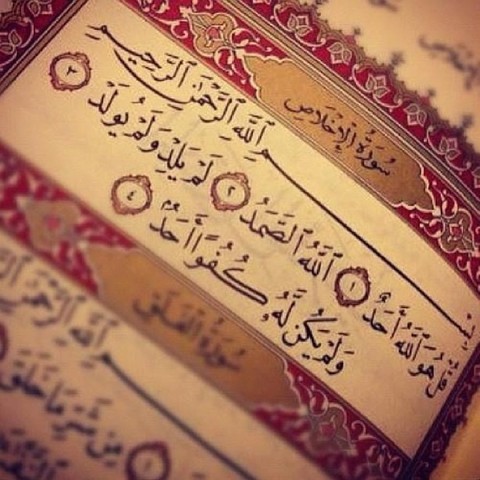 سُورَةُ الإِخْلَاصِ
بِسْمِ اللَّهِ الرَّحْمَٰنِ الرَّحِيمِ
قُلْ هُوَ اللَّهُ أَحَدٌ ١ اللَّهُ الصَّمَدُ ٢ لَمْ يَلِدْ وَلَمْ يُولَدْ ٣
وَلَمْ يَكُن لَّهُ كُفُوًا أَحَدٌ ٤
سُورَةُ الْفَلَقِ
اللَّهِ الرَّحْمَٰنِ
مِن شَرِّ مَا خَلَقَ